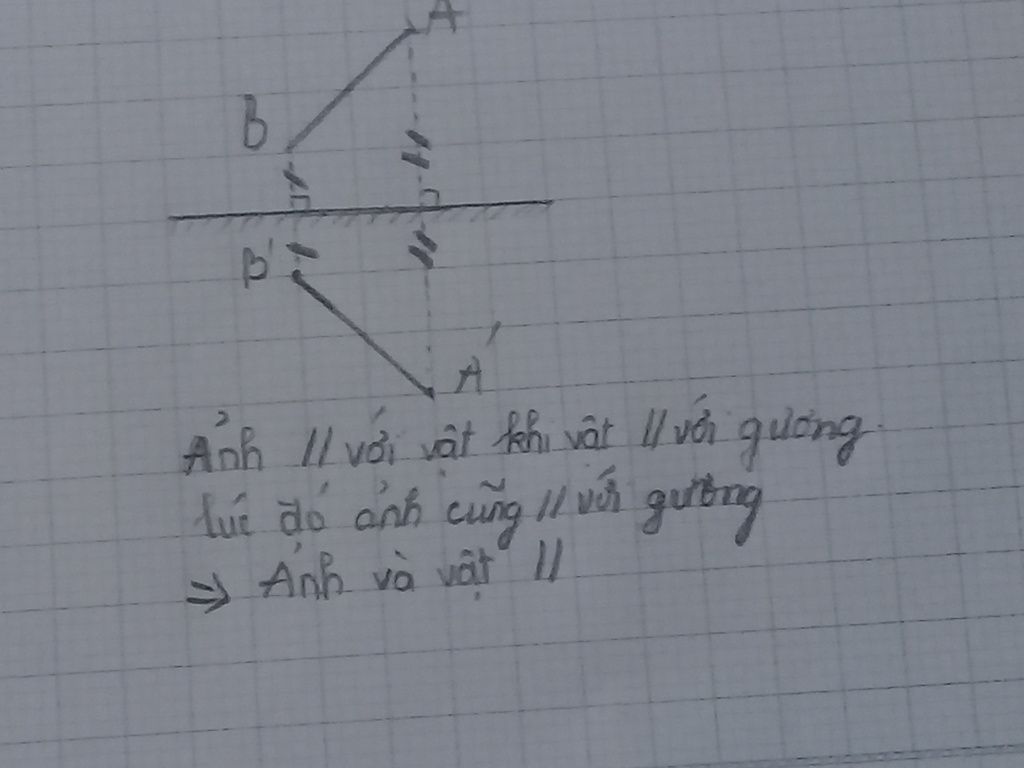 A
B
B'
A'
Ảnh // với vật khi vật // với gương.
lúc đó ảnh cũng // với gương
=> Ảnh và vật //